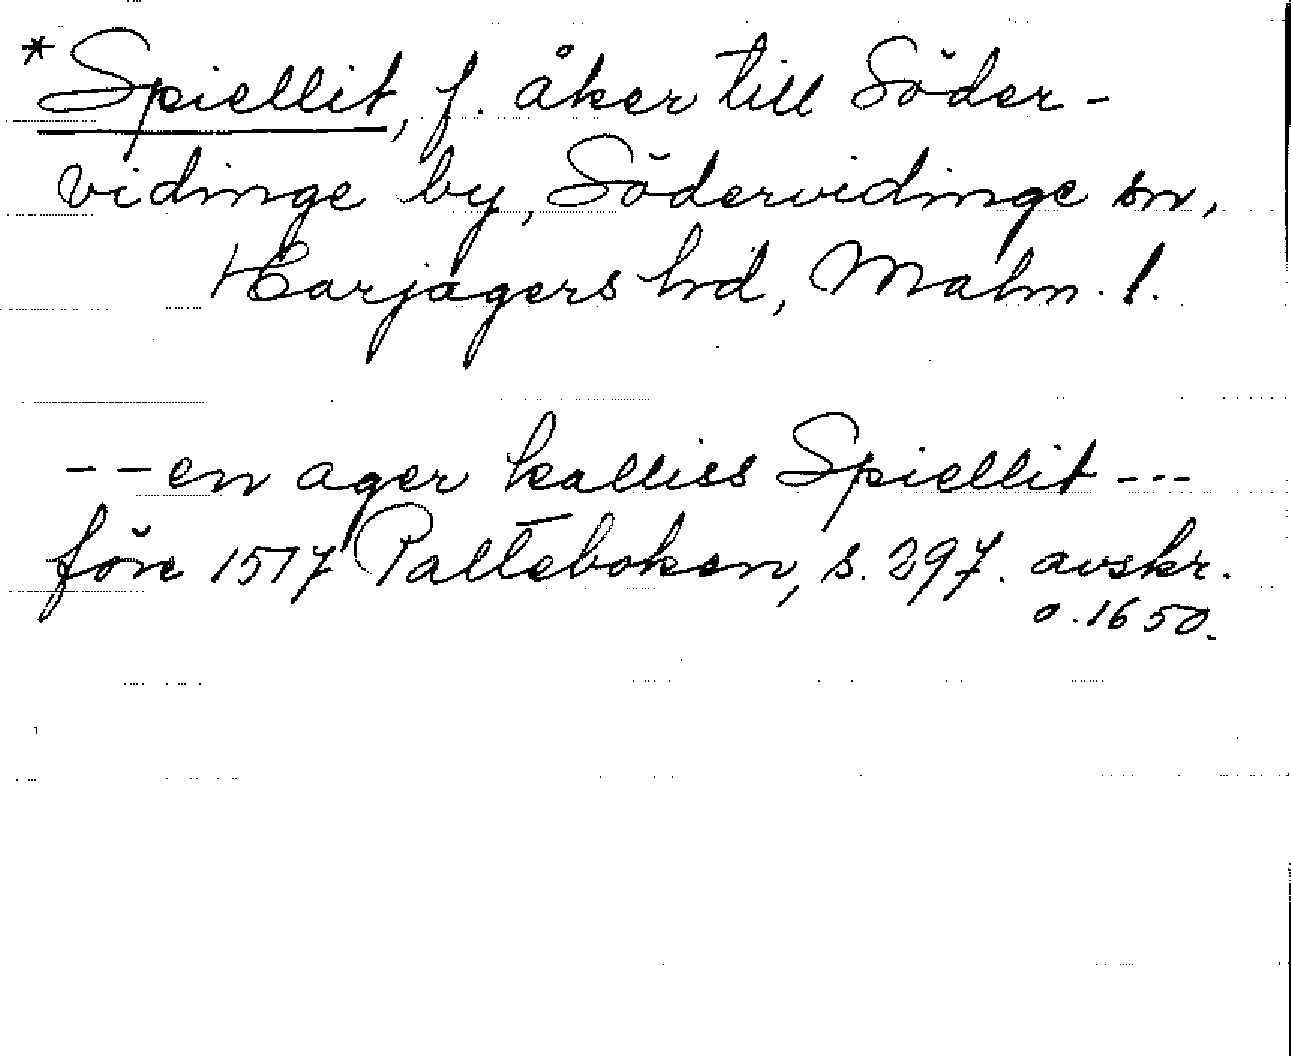 *Spiellit, f. åker till Söder-
vidinge by, Södervidinge sn,
Harjagers hd, Malm. l.
-- en ager kalliss Spiellit ---
före 1517 Palteboken, s. 297. avskr.
o. 1650.